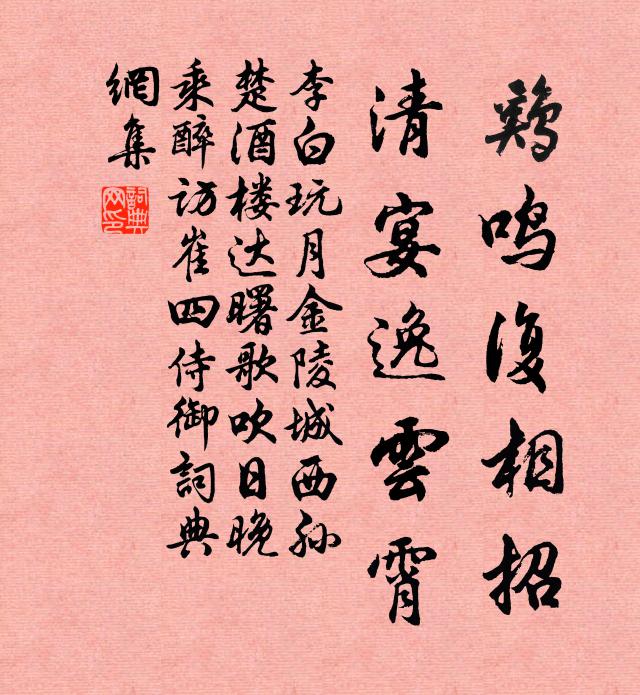 鷄鸣復相招
清宴逸雲霄
李白玩月金陵城西孙
楚酒楼达曙歌吹日晚
乘醉访崔四侍御詞典
網集
詞典網印